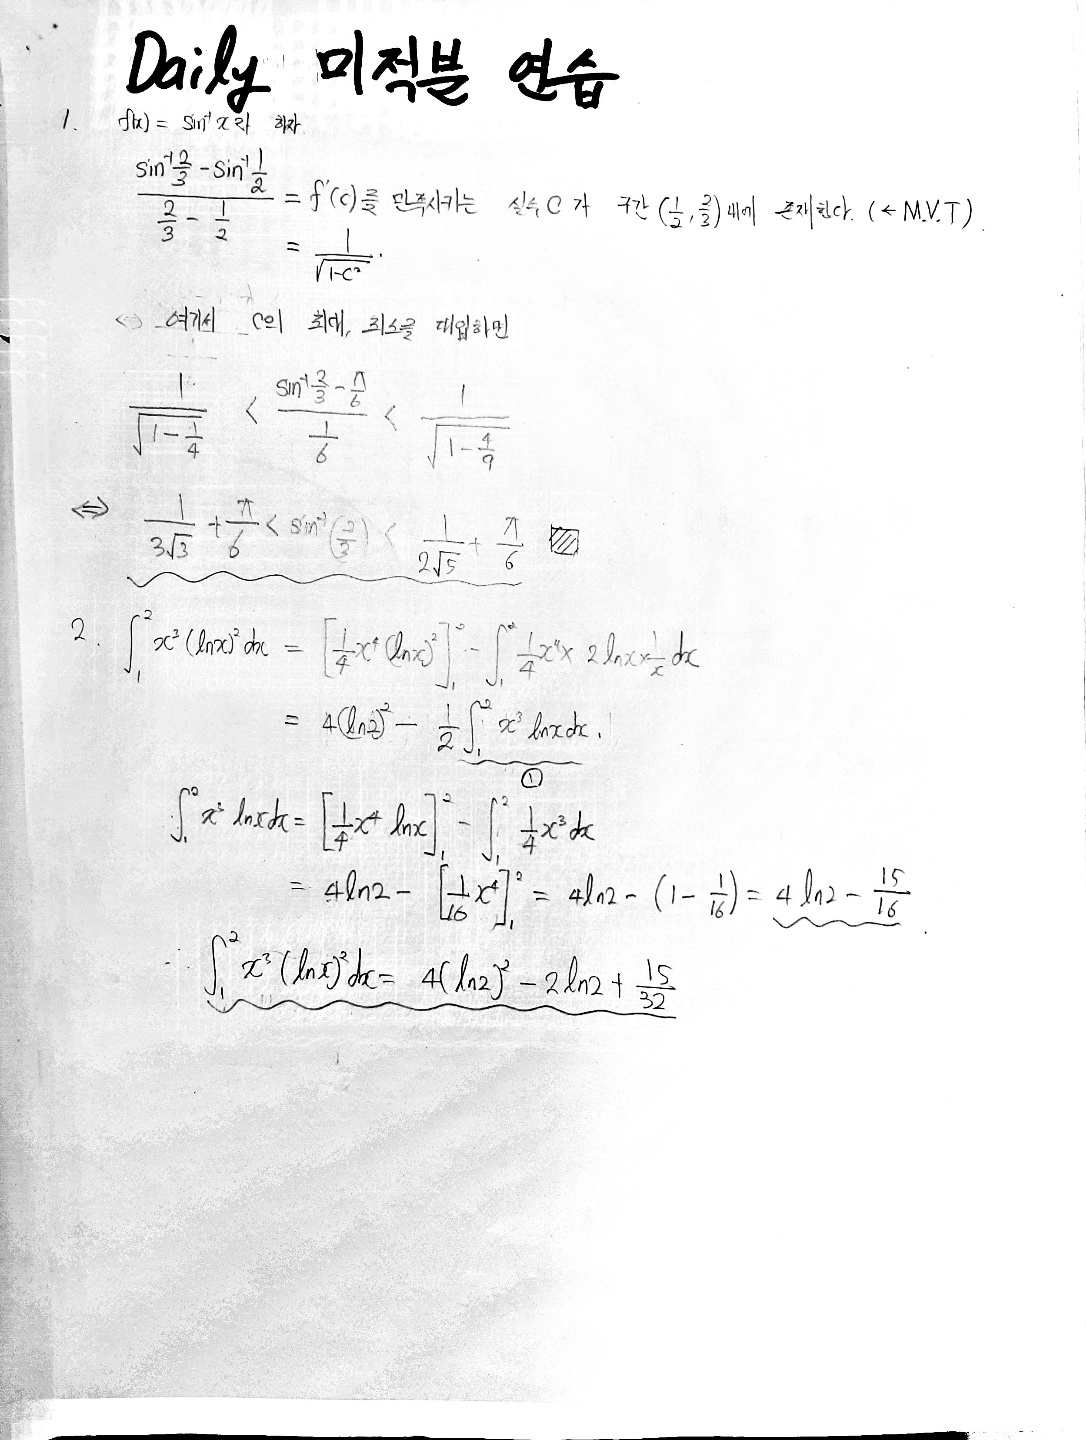 Daily 미적분 연습
1. f(x) = sin⁻¹x라 하자
(sin⁻¹ 2/3 - sin⁻¹ 1/2) / (2/3 - 1/2) = f'(c)를 만족시키는 실수 C가 구간 (1/2, 2/3) 내에 존재한다. (← M.V.T)
= 1/√(1-c²).
⇔ 여기서 C의 최대, 최소를 대입하면
1/√(1-1/4) < (sin⁻¹ 2/3 - π/6) / (1/6) < 1/√(1-4/9)
⇔ 1/(3√3) + π/6 < sin⁻¹(2/3) < 1/(2√5) + π/6 ▨
2. ∫₁² x³(lnx)² dx = [1/4 x⁴ (lnx)²]₁² - ∫₁² 1/4 x⁴ × 2lnx × 1/x dx
= 4(ln2)² - 1/2 ∫₁² x³ lnx dx.
①
∫₁² x³ lnx dx = [1/4 x⁴ lnx]₁² - ∫₁² 1/4 x³ dx
= 4ln2 - [1/16 x⁴]₁² = 4ln2 - (1 - 1/16) = 4 ln2 - 15/16
∴ ∫₁² x³(lnx)² dx = 4(ln2)² - 2ln2 + 15/32